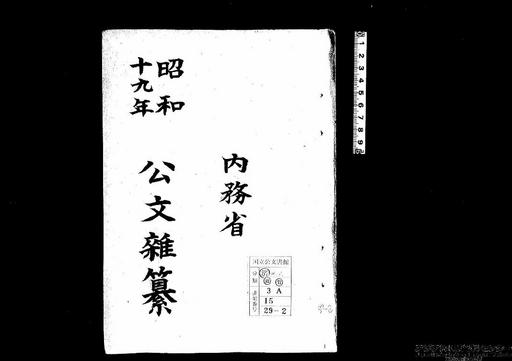 内務省
昭和
十九年
公文雜纂
国立公文書館
分類
3 A
15
29-2
1 2 3 4 5 6 7 8 9